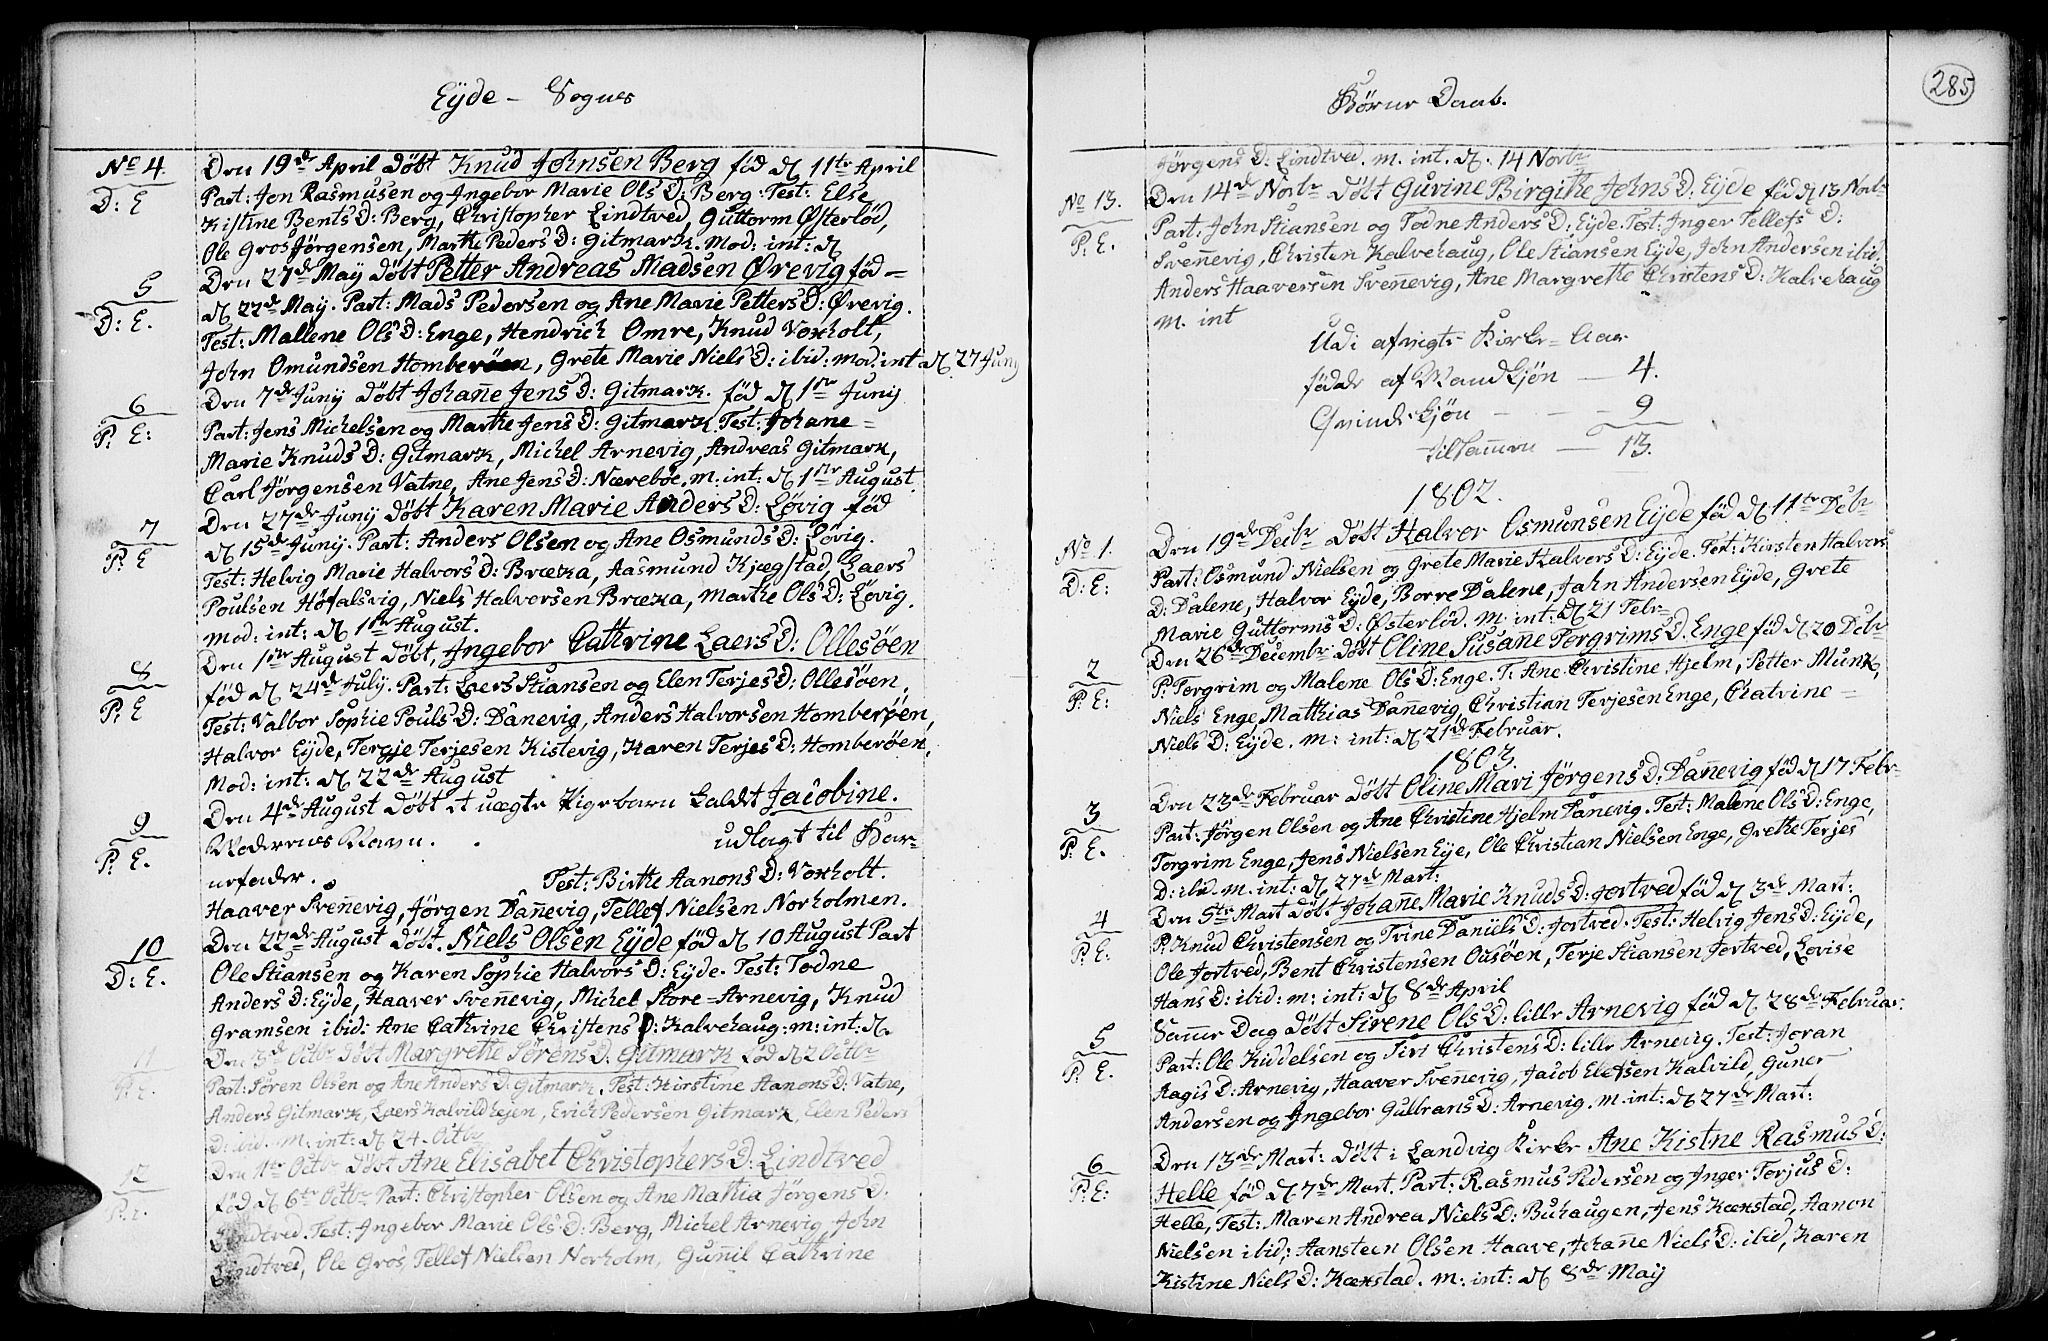 Eyde - Sogns
No 4
D: E
Den 19de April døbt Knud Johnsen Berg fød d. 11te April
Part: Jon Rasmusen og Ingebor Marie Ols D: Berg. Test: Else
Kistine Bents D: Berg, Christopher Lindtved, Guttorm Østerlød,
Ole Gros Jørgensen, Marthe Peders D: Gitmark. Mod: int: d.
5
D: E.
Den 27de May døbt Petter Andreas Madsen Ørevig fød =
d. 22de May. Part: Mads Pedersen og Ane Marie Petters D: Ørevig.
Test: Mallene Ols D: Enge, Hendrich Omre, Knud Voxholt,
John Omundsen Homberøen, Grete Marie Niels D: ibid. mod: int d. 27 Juny
6
P: E:
Den 7de Juny døbt Johañe Jens D: Gitmark. fød d. 1ste Juny
Part: Jens Michelsen og Marthe Jens D: Gitmark. Test: Johane =
Marie Knuds D: Gitmark, Michel Arnevig, Andreas Gitmark,
Carl Jørgensen Vatne, Ane Jens D: Nærebøe. m: int: d. 1ste August.
7
P: E
Den 27de Juny døbt Karen Marie Anders D: Løvig fød
d. 15de Juny. Part: Anders Olsen og Ane Osmunds D: Løvig.
Test: Helvig Marie Halvors D: Bræka, Aasmund Kjægstad, Laers
Poulsen Høfalsvig, Niels Halvorsen Bræka, Marthe Ols D: Løvig.
Mod: int: d. 1ste August.
8
P: E
Den 1ste August døbt, Ingebor Cathrine Laers D: Ollesøen
fød d. 24de July. Part: Laers Stiansen og Elen Terjes D: Ollesøen.
Test: Valbor Sophie Pouls D: Dañevig, Anders Halvorsen Homberøen,
Halvor Eyde, Tergje Terjesen Kistevig, Karen Terjes D: Homberøen,
Mod: int: d. 22de August
9
P: E.
Den 4de August døbt et uægte Pigebarn kaldet Jacobine.
Moderens Navn. . udlagt til Bar-
nefader. Test: Birthe Aanons D: Voxholt.
Haaver Sveñevig, Jørgen Dañevig, Tellef Nielsen Norholmen.
10
D: E.
Den 22de August døbt. Niels Olsen Eyde fød d. 10 August Part
Ole Stiansen og Karen Sophie Halvors D: Eyde. Test: Todne
Anders D: Eyde, Haaver Sveñevig, Michel Store = Arnevig, Knud
Gramsen ibid: Ane Cathrine Christens D: Kalvehaug: m: int: d.
11
P: E.
Den 3de Octbr døbt Margrethe Sørens D: Gitmark fød d. 2 Octbr
Part: Søren Olsen og Ane Anders D: Gitmark, Test: Kirstine Aanons D: Vatne,
Anders Gitmark, Laers Kalvildhejen, Erich Pedersen Gitmark, Elen Peders
D: ibid. m: int: d. 24. Octbr
12
P: E.
Den 11te Octbr døbt Ane Elisabet Christophers D: Lindtved
fød d. 6te Octbr Part: Christopher Olsen og Ane Mathia Jørgens D:
Lindtved. Test: Ingebor Marie Ols D: Berg, Michel Arnevig, John
Lindtved, Ole Gros, Tellef Nielsen Norholm, Guñil Cathrine
Børns Daab.
285
Jørgens D: Lindtved. m. int. d. 14 Novbr
No 13.
P. E.
Den 14de Novbr døbt Gurine Birgithe Johns D: Eyde fød d. 13 Novbr
Part: John Stiansen og Todne Anders D: Eyde. Test: Inger Tellefs D:
Sveñevig, Christen Kalvehaug, Ole Stiansen Eyde, John Andersen ibid.
Anders Haaversen Sveñevig, Ane Margrethe Christens D: Kalvehaug
m. int
Udi afvigte Kirke = Aar
fødde af Mandkjøn — 4.
Qvindekjøn - - - 9
tilsamen — 13.
1802.
No 1.
D: E:
Den 19de Decbr døbt Halvor Osmunsen Eyde fød d. 11te Decbr
Part: Osmund Nielsen og Grete Marie Halvors D: Eyde. Test: Kirsten Halvors
D: Dalene, Halvor Eyde, Borre Dalene, John Andersen Eyde, Grete
Marie Guttorms D: Østerlød. m: int: d. 21 Febr
2
P: E:
Den 26de Decembr døbt Oline Susane Torgrims D. Enge fød d. 20 Decbr
P: Torgrim og Malene Ols D: Enge. T. Ane Christine Hjelm, Petter Munk,
Niels Enge, Matthias Dañevig, Christian Terjesen Enge, Chatrine =
Niels D: Eyde. m: int: d. 21de Februar.
1803.
3
P: E.
Den 23de Februar døbt Oline Mari Jørgens D: Dañevig fød d. 17 Febr
Part: Jørgen Olsen og Ane Christine Hjelm Dañevig. Test: Malene Ols D: Enge,
Torgrim Enge, Jens Nielsen Eye, Ole Christian Nielsen Enge, Grethe Terjes
D: ibid. m. int: d. 27de Mart:
4
P: E:
Den 5te Mart døbt Johañe Marie Knuds D: Jortved fød d. 3de Mart:
P: Knud Christensen og Trine Daniels D: Jortved. Test: Helvig Jens D: Eyde,
Ole Jortved, Bent Christensen Ousøen, Terje Stiansen Jortved, Lovise
Hans D: ibid: m: int: d. 8de April
5
P: E.
Same Dag døbt Sirene Ols D: lille Arnevig fød d. 28de Februar.
Part: Ole Kiddelsen og Siri Christens D: lille Arnevig. Test: Joran
Aagis D: Arnevig, Haaver Sveñevig, Jacob Elefsen Kalvild, Guner
Andersen og Ingebor Gulbrans D: Arnevig. m. int: d. 27de Mart:
6
P: E:
Den 13de Mart: døbt i Landvig Kirke Ane Kistne Rasmus D:
Helle fød d. 7de Mart. Part: Rasmus Pedersen og Inger Torjus D:
Helle, Test: Maren Andrea Niels D: Buhaugen, Jens Kækstad, Aanon
Nielsen ibid; Aansteen Olsen Haave, Johañe Niels D: ibid, Karen
Kistine Niels D: Kækstad. m: int: d. 8de May